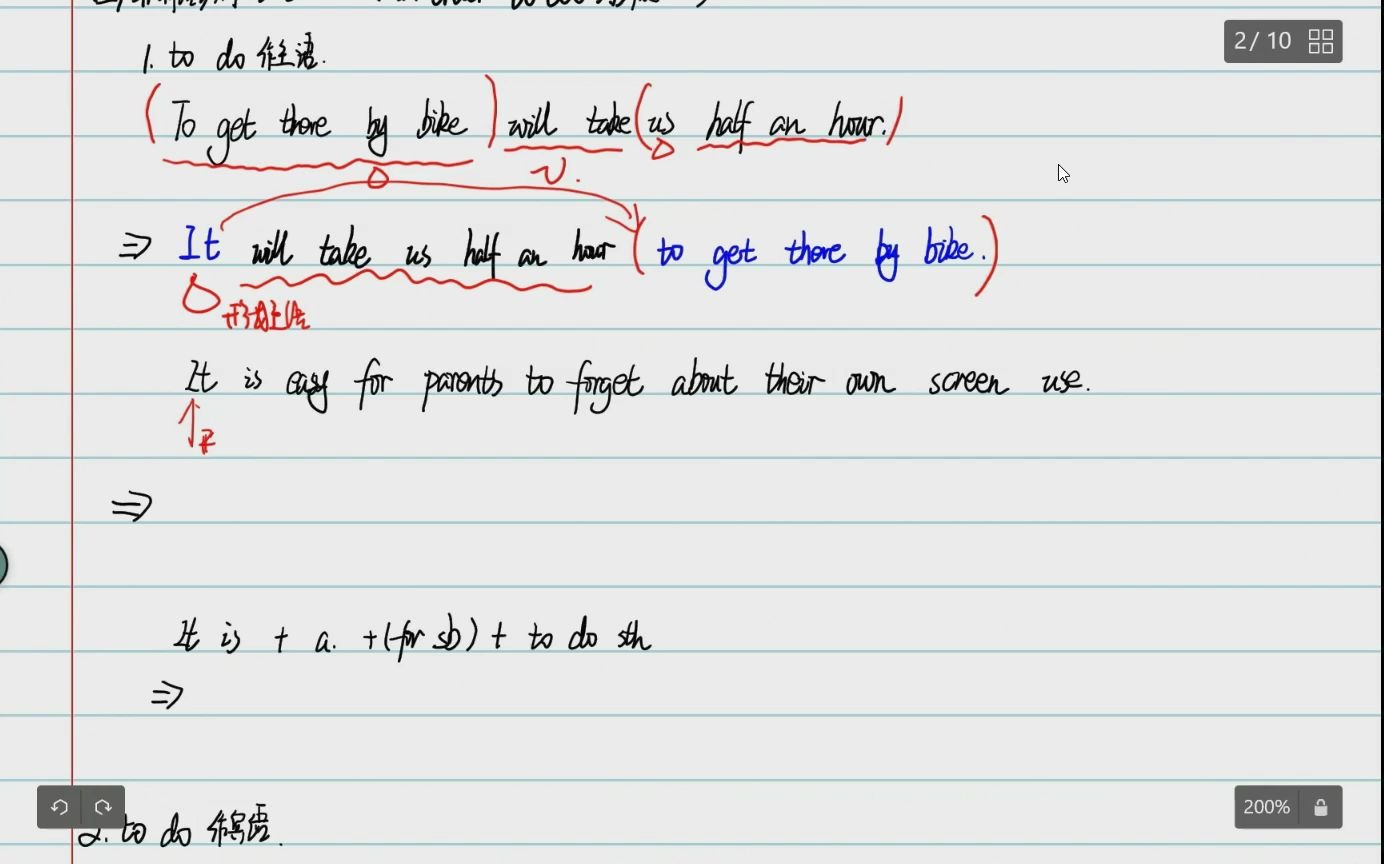 2 / 10
1. to do 作主语.
(To get there by bike) will take (us half an hour.)
v.
⇒ It will take us half an hour (to get there by bike.)
形式主语
It is easy for parents to forget about their own screen use.
⇒
It is + a. + (for sb) + to do sth
⇒
200%
2. to do 作宾语.